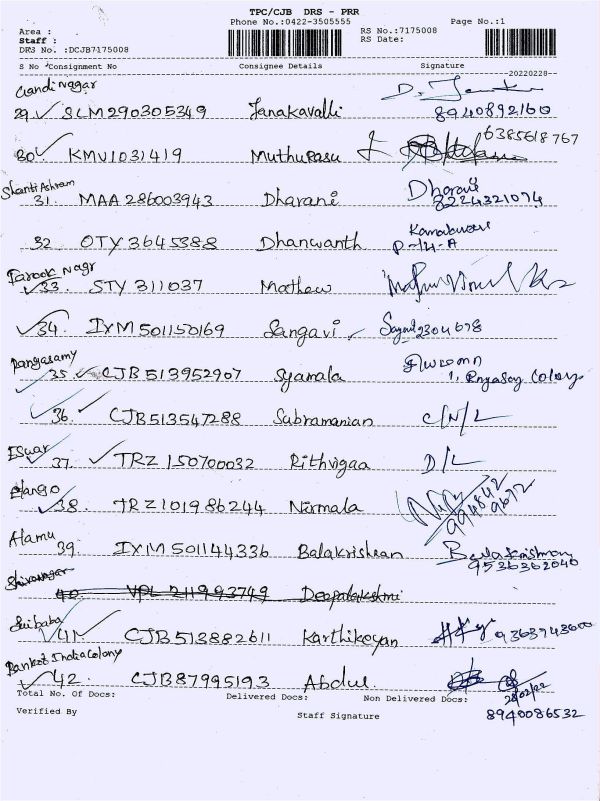 TPC/CJB DRS - PRR
Phone No.:0422-3505555 Page No.:1
Area : RS No.:7175008
Staff : RS Date:
DRS No. :DCJB7175008
S No Consignment No Consignee Details Signature
20220228
Gandi Nagar
29 SLM290305349 Janakavalli 8940892160
30 KMU1031419 Muthupasu 6385618767
Shanti Ashram
31. MAA 286003943 Dharani Dharani 8224321074
32. OTY 3645388 Dhanwanth P-14-A
Farook Nagr
33. STY 311037 Mathew
34. IXM 501150169 Sangavi
Rangasamy
35 CJB 513952907 Syamala சியாமளா 1, Rngasay Colony
36. CJB513547288 Subramanian C/N/L
ESwar
37. TRZ 150700032 Rithvigaa D/L
Elango
38. TRZ101986244 Nirmala 994842 9672
Alamu
39. IXM 501144336 Balakrishnan Balakrishnan 9536362040
Shivanagar
40 VPL 211993749 Deepalakshmi
Saibaba
41 CJB513882611 Karthikeyan 9363943600
42. CJB87995193 Abdul 28/02/22
Total No. Of Docs: Delivered Docs: Non Delivered Docs:
Verified By Staff Signature 8940086532